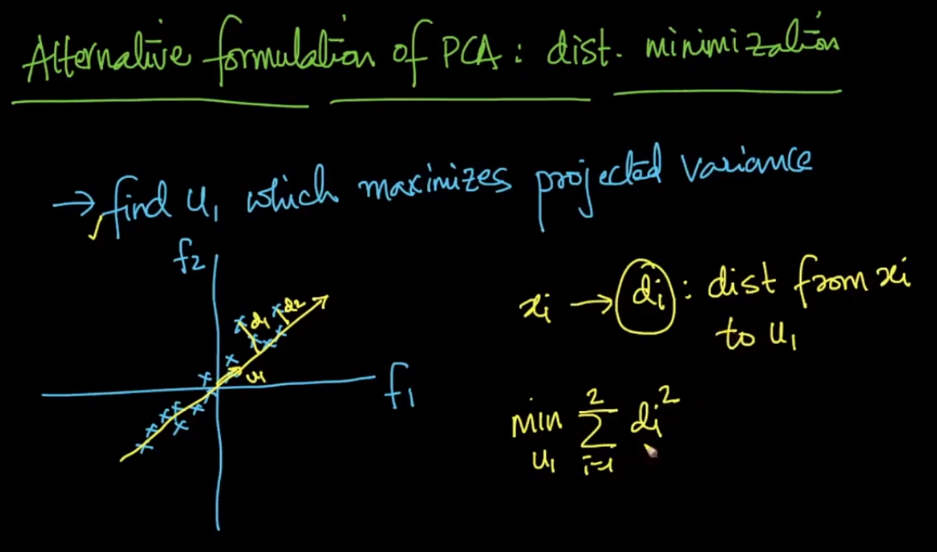 Alternative formulation of PCA : dist. minimization
→ find u₁ which maximizes projected variance
f₂
d₁
d₂
u₁
f₁
xᵢ → dᵢ : dist from xᵢ
to u₁
min ∑ dᵢ²
u₁ i=1
2